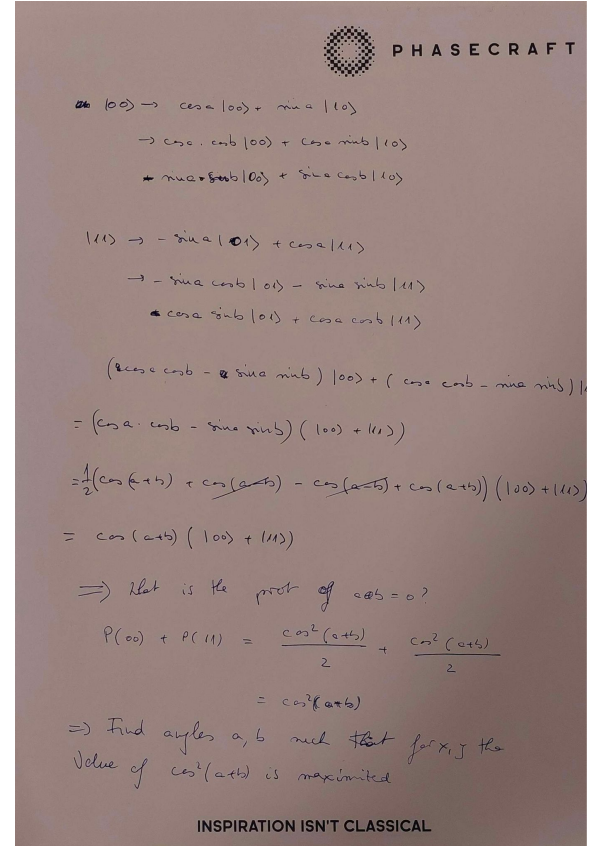 PHASECRAFT
|00⟩ → cos a |00⟩ + sin a |10⟩
→ cos a · cos b |00⟩ + cos a sin b |10⟩
- sin a · sin b |00⟩ + sin a cos b |10⟩
|11⟩ → - sin a |01⟩ + cos a |11⟩
→ - sin a cos b |01⟩ - sin a sin b |11⟩
cos a sin b |01⟩ + cos a cos b |11⟩
(cos a cos b - sin a sin b) |00⟩ + (cos a cos b - sin a sin b) |1
= (cos a · cos b - sin a sin b) (|00⟩ + |11⟩)
= 1/2 (cos(a+b) + cos(a-b) - cos(a-b) + cos(a+b)) (|00⟩ + |11⟩
= cos(a+b) (|00⟩ + |11⟩)
⟹ What is the prob of a⊕b = 0?
P(00) + P(11) = cos²(a+b)/2 + cos²(a+b)/2
= cos²(a+b)
⇒ Find angles a, b such that for x, y the
value of cos²(a+b) is maximized
INSPIRATION ISN'T CLASSICAL